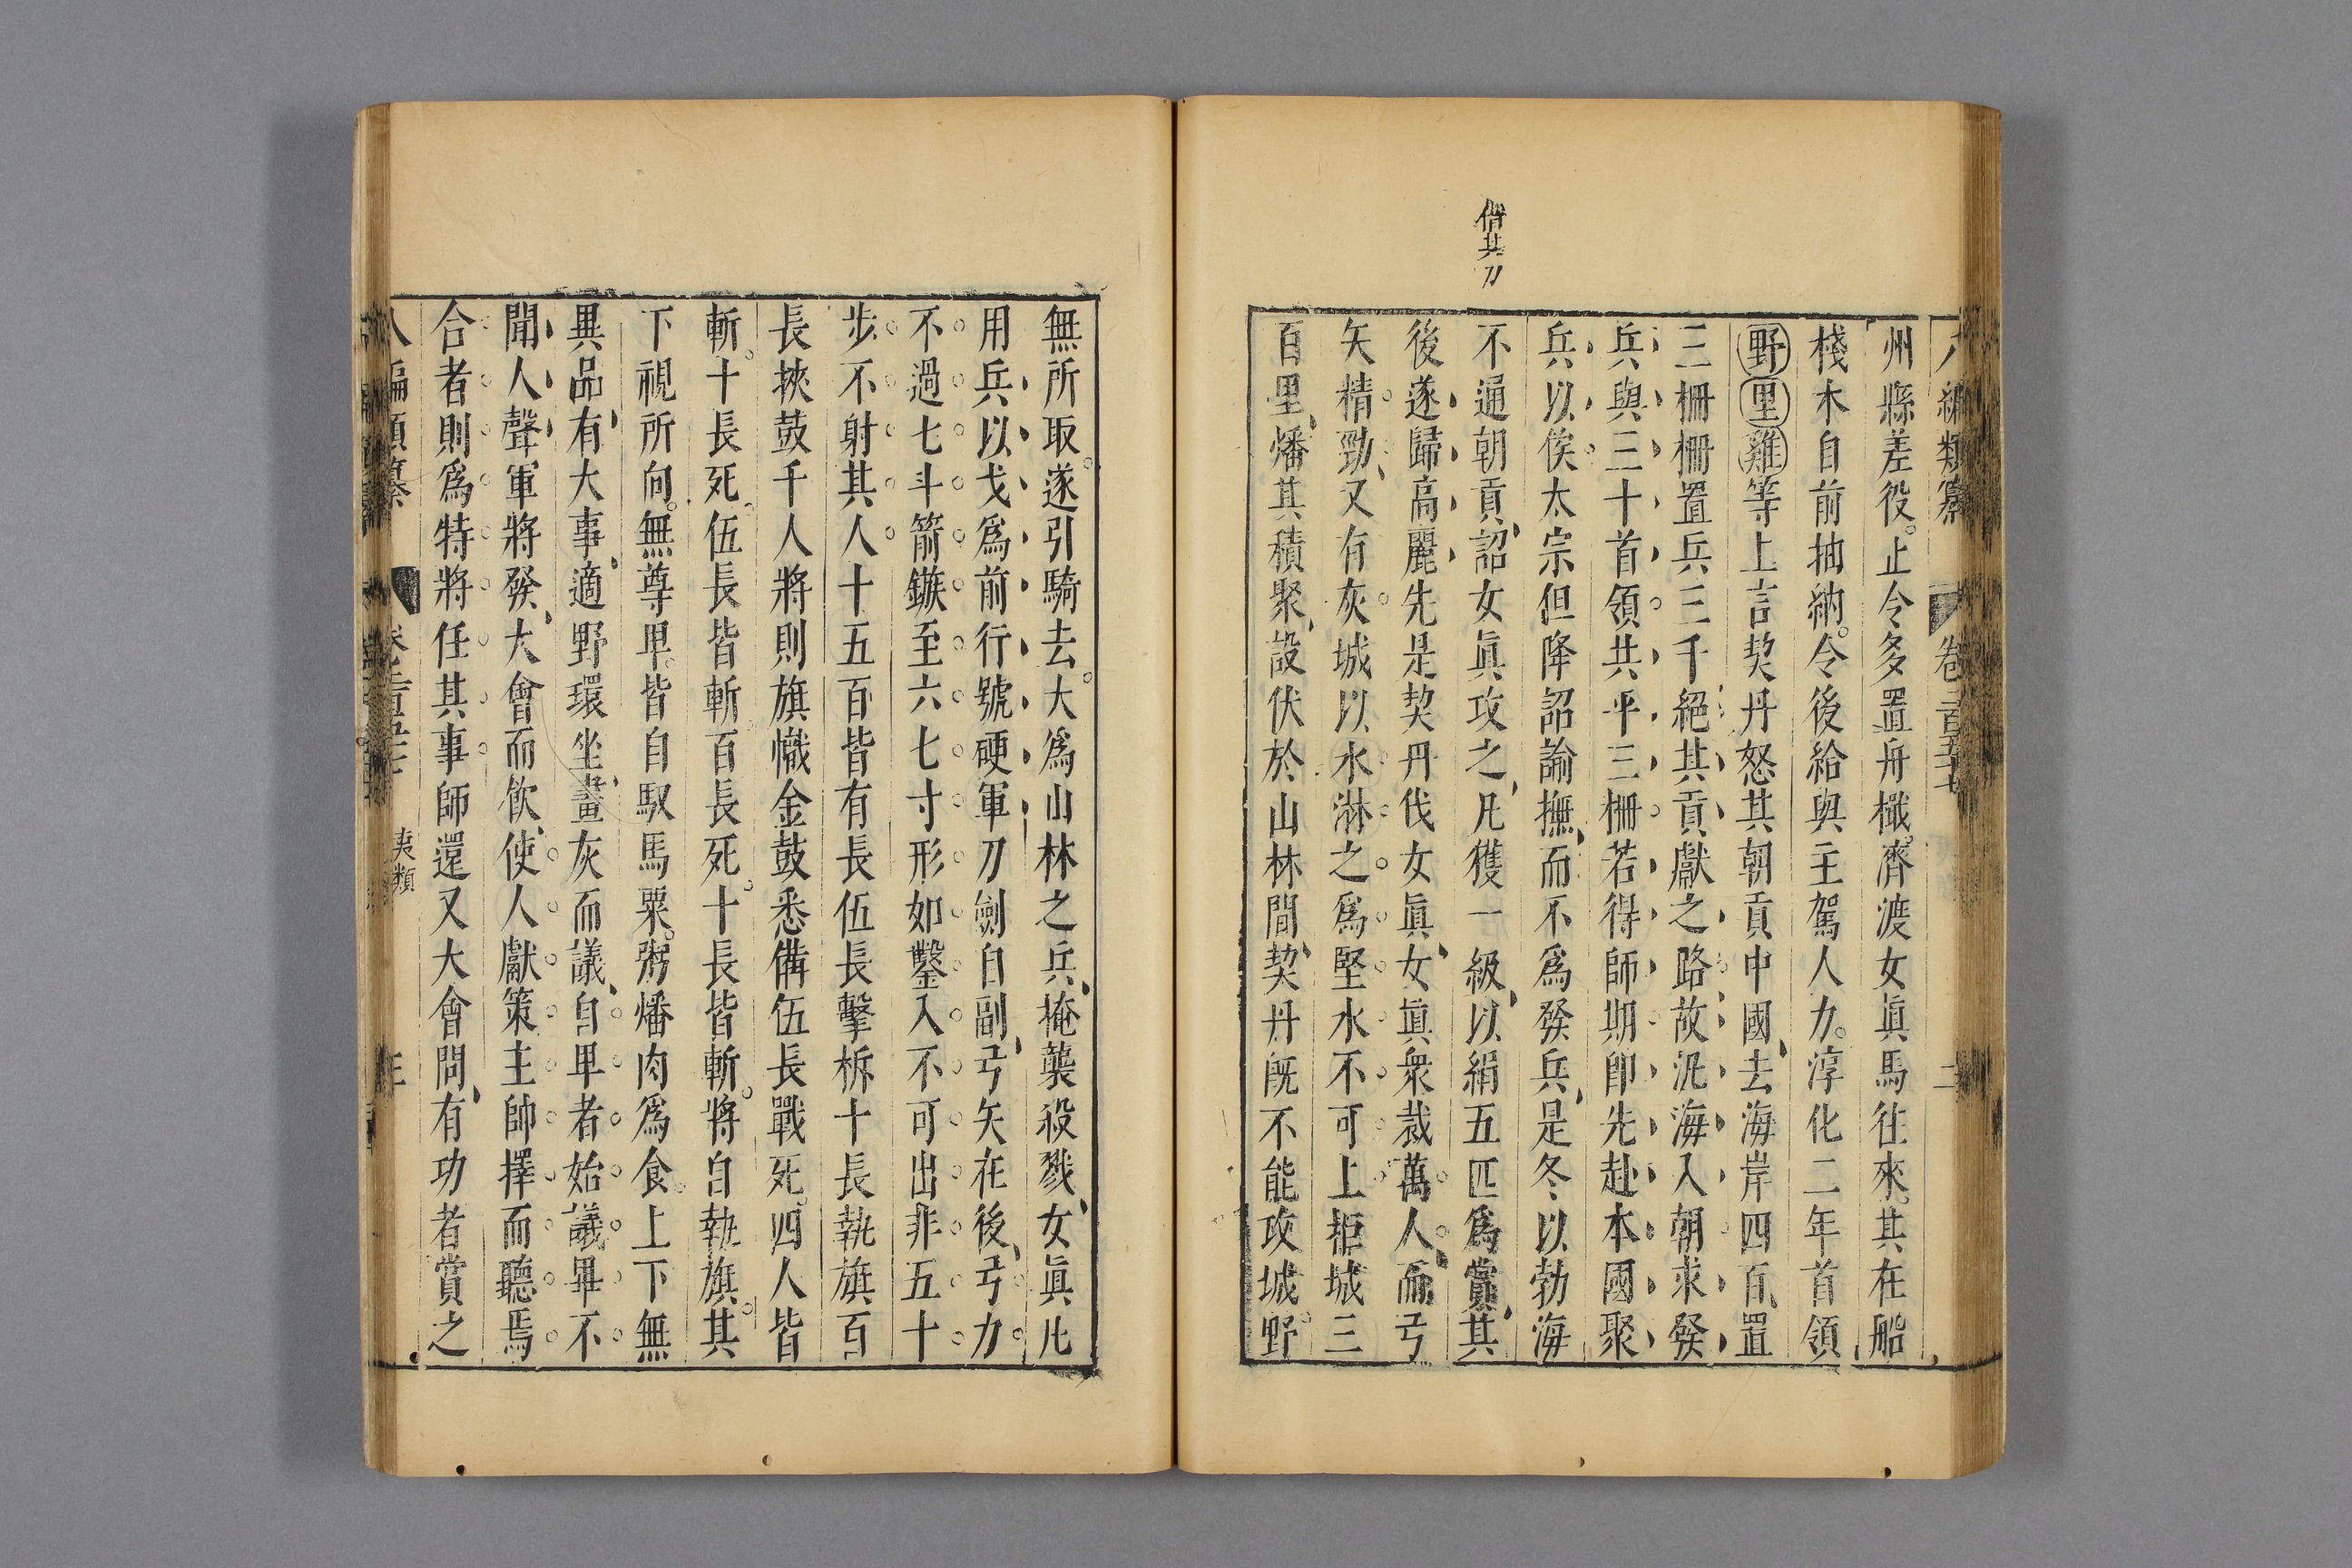 八編類纂 卷二百五十七 二
州縣差役止令多置舟檝濟渡女眞馬往來其在船
棧木自前抽納令後給與主駕人力淳化二年首領
野里雞等上言契丹怒其朝貢中國去海岸四百置
三柵柵置兵三千絕其貢獻之路故汎海入朝求發
兵與三十首領共平三柵若得師期卽先赴本國聚
兵以俟太宗但降詔諭撫而不爲發兵是冬以勃海
不通朝貢詔女眞攻之凡獲一級以絹五匹爲賞其
後遂歸高麗先是契丹伐女眞女眞衆裁萬人而弓
矢精勁又有灰城以水淋之爲堅水不可上拒城三
百里燔其積聚設伏於山林間契丹旣不能攻城野
無所取遂引騎去大爲山林之兵掩襲殺戮女眞凡
用兵以戈爲前行號硬軍刀劍自副弓矢在後弓力
不過七斗箭鏃至六七寸形如鑿入不可出非五十
步不射其人十五百皆有長伍長擊柝十長執旗百
長挾鼓千人將則旗幟金鼓悉備伍長戰死四人皆
斬十長死伍長皆斬百長死十長皆斬將自執旗其
下視所向無尊卑皆自馭馬粟粥燔肉爲食上下無
異品有大事適野環坐畫灰而議自卑者始議畢不
聞人聲軍將發大會而飲使人獻策主帥擇而聽焉
合者則爲特將任其事師還又大會問有功者賞之
八編類纂 卷二百五十七 夷類 三